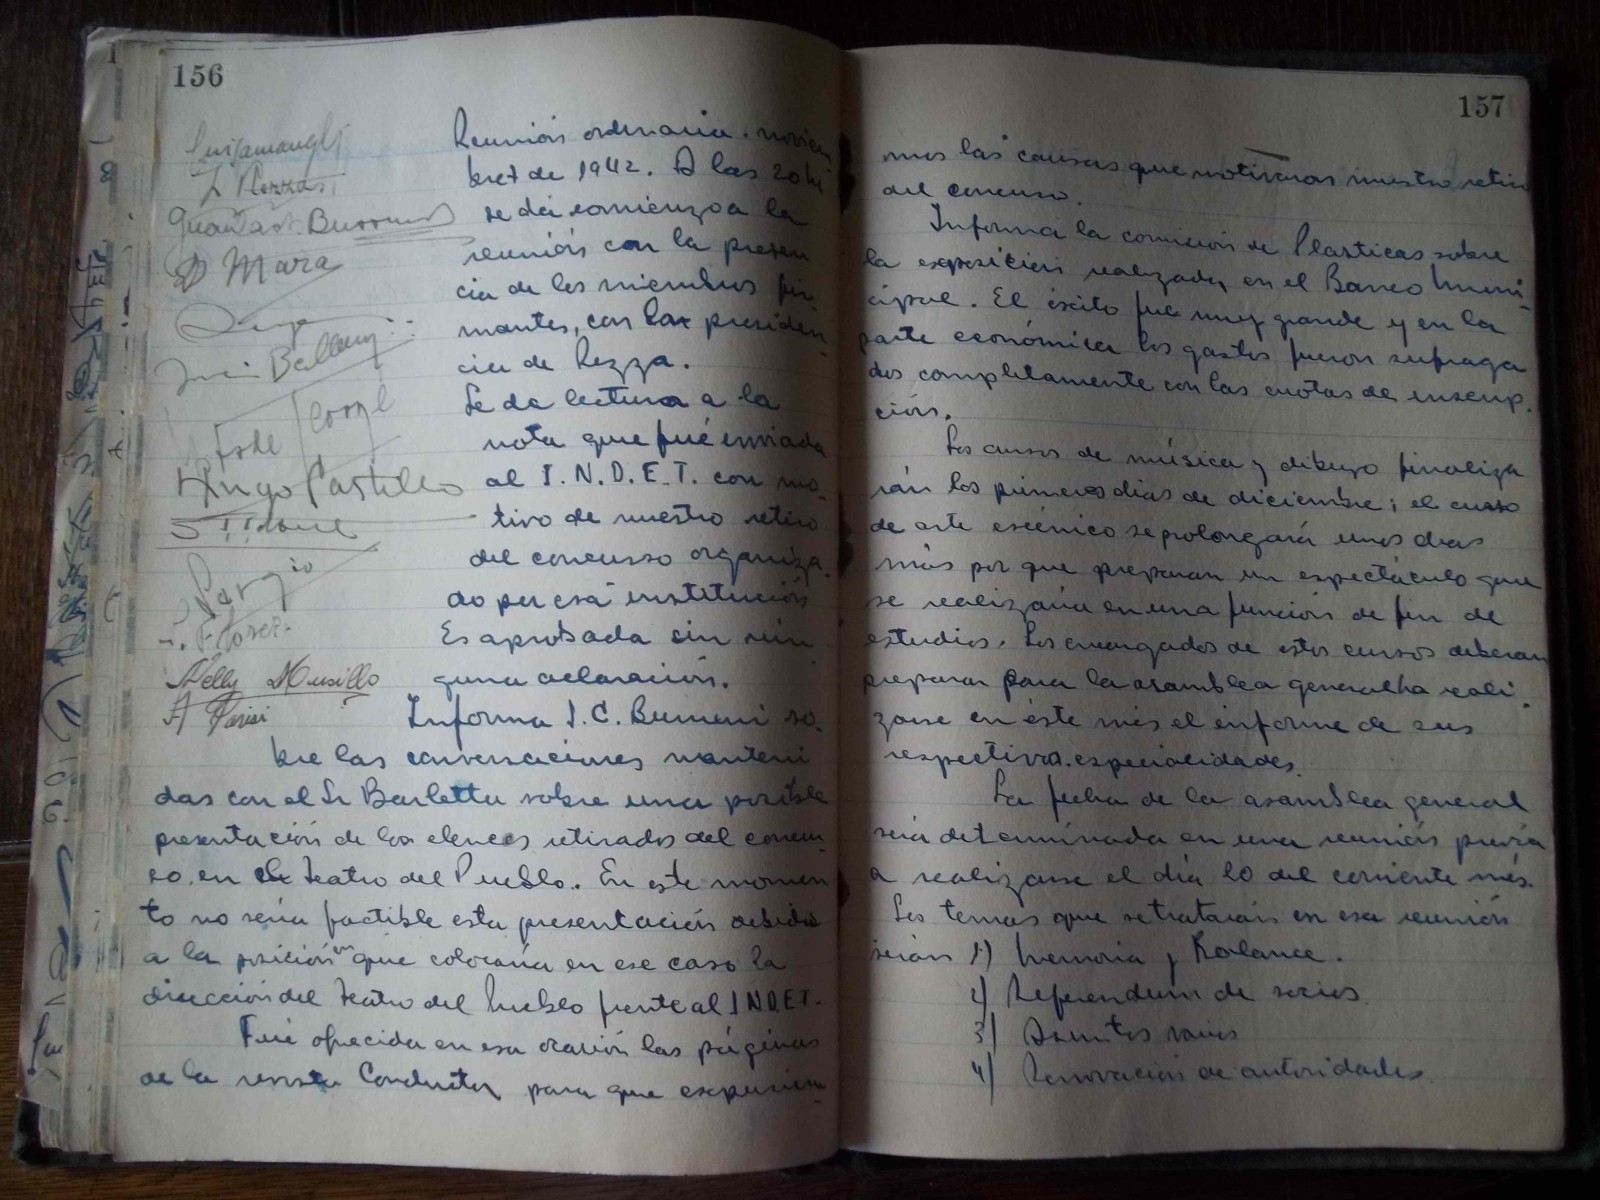 156
Reunión ordinaria. noviem
bre 7 de 1942. A las 20 hs
se da comienzo a la
reunión con la presen
cia de los miembros fir
mantes, con la presiden
cia de Rezza.
Se da lectura a la
nota que fué enviada
al I.N.D.E.T. con mo-
tivo de nuestro retiro
del concurso organiza-
do por esa institución
Es aprobada sin nin
guna aclaración.
Informa J. C. so-
bre las conversaciones manteni
das con el Sr Barletta sobre una posible
presentación de los elencos retirados del concur-
so en el Teatro del Pueblo. En este momen
to no sería factible esta presentación debido
a la posición en que colocaría en ese caso la
dirección del Teatro del Pueblo frente al INDET.
Fué ofrecida en esa ocasión las páginas
de la revista Conducta para que expusiera-
D Mara
Hugo Castillo
Nelly Musillo
A Parisi
157
mos las causas que motivaron nuestro retiro
del concurso.
Informa la comisión de Plasticas sobre
la exposición realizada en el Banco Muni-
cipal. El éxito fué muy grande y en la
parte económica los gastos fueron sufraga
dos completamente con las cuotas de inscrip-
ción.
Los cursos de música y dibujo finaliza
rán los primeros dias de diciembre; el curso
de arte escénico se prolongará unos dias
más por que preparan un espectáculo que
se realizaría en una función de fin de
estudios. Los encargados de estos cursos deberan
preparar para la asamblea general ha reali-
zarse en éste més el informe de sus
respectivas especialidades.
La fecha de la asamblea general
será determinada en una reunión previa
a realizarse el día 10 del corriente més.
Los temas que se trataran en esa reunión
serán 1) Memoria y Balance.
2) Referendum de socios.
3) Asuntos varios
4) Renovación de autoridades.